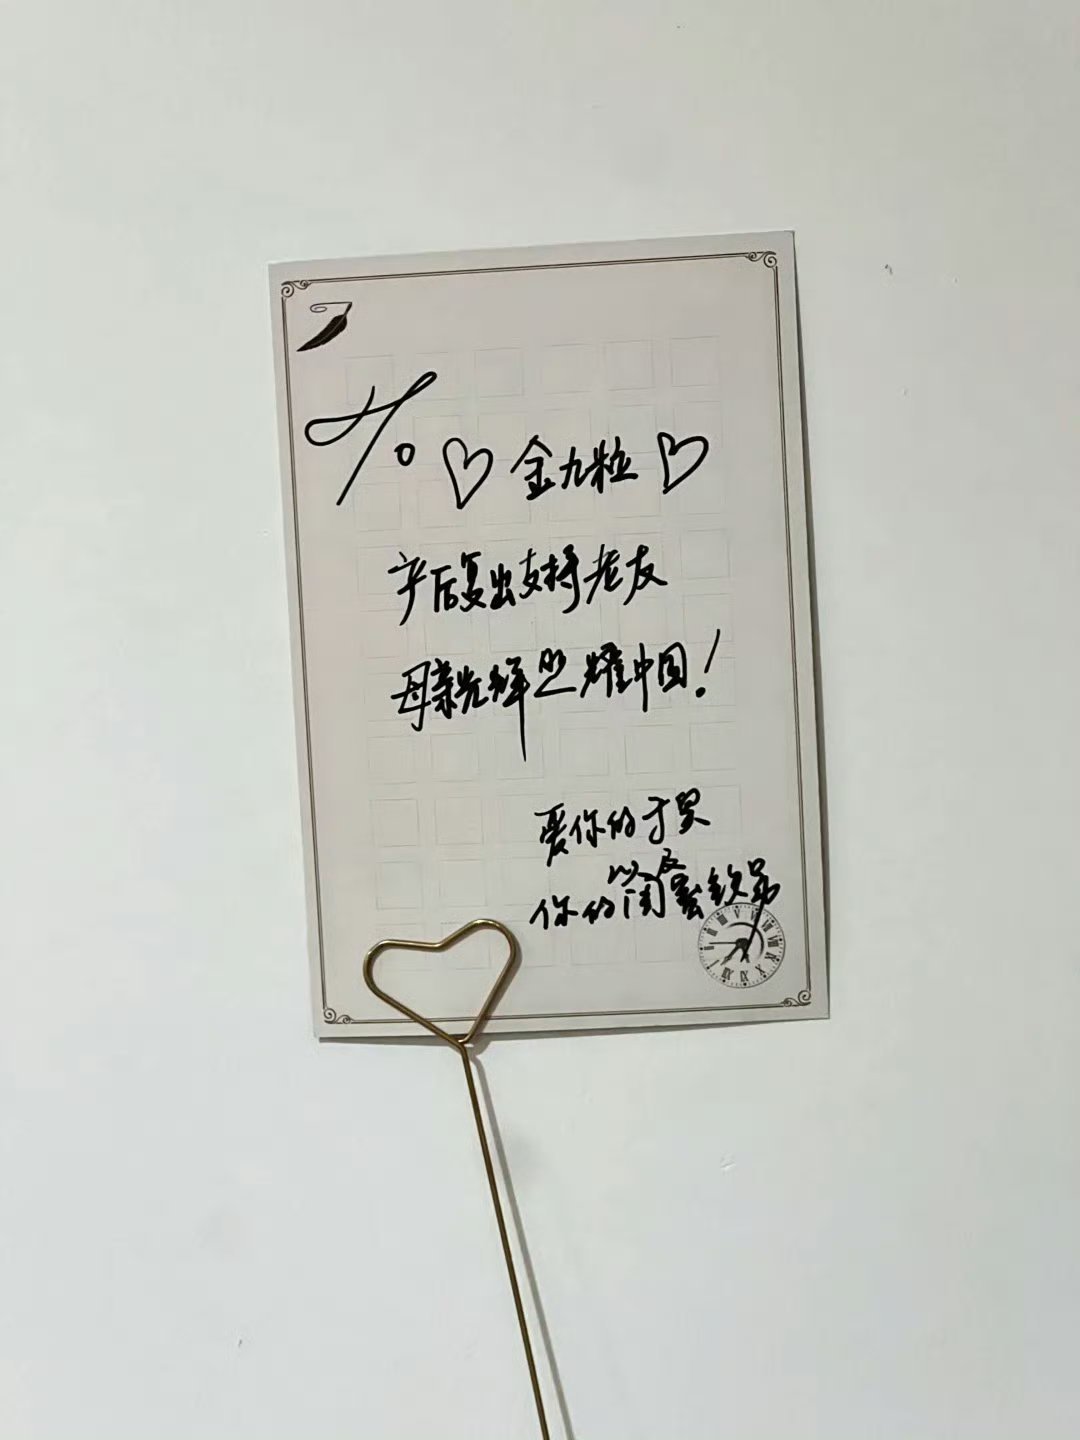 To ♡ 金九粒 ♡
产后复出支持老友
母亲光辉照耀中国!
爱你的于昊
以及
你的闺蜜钦弟